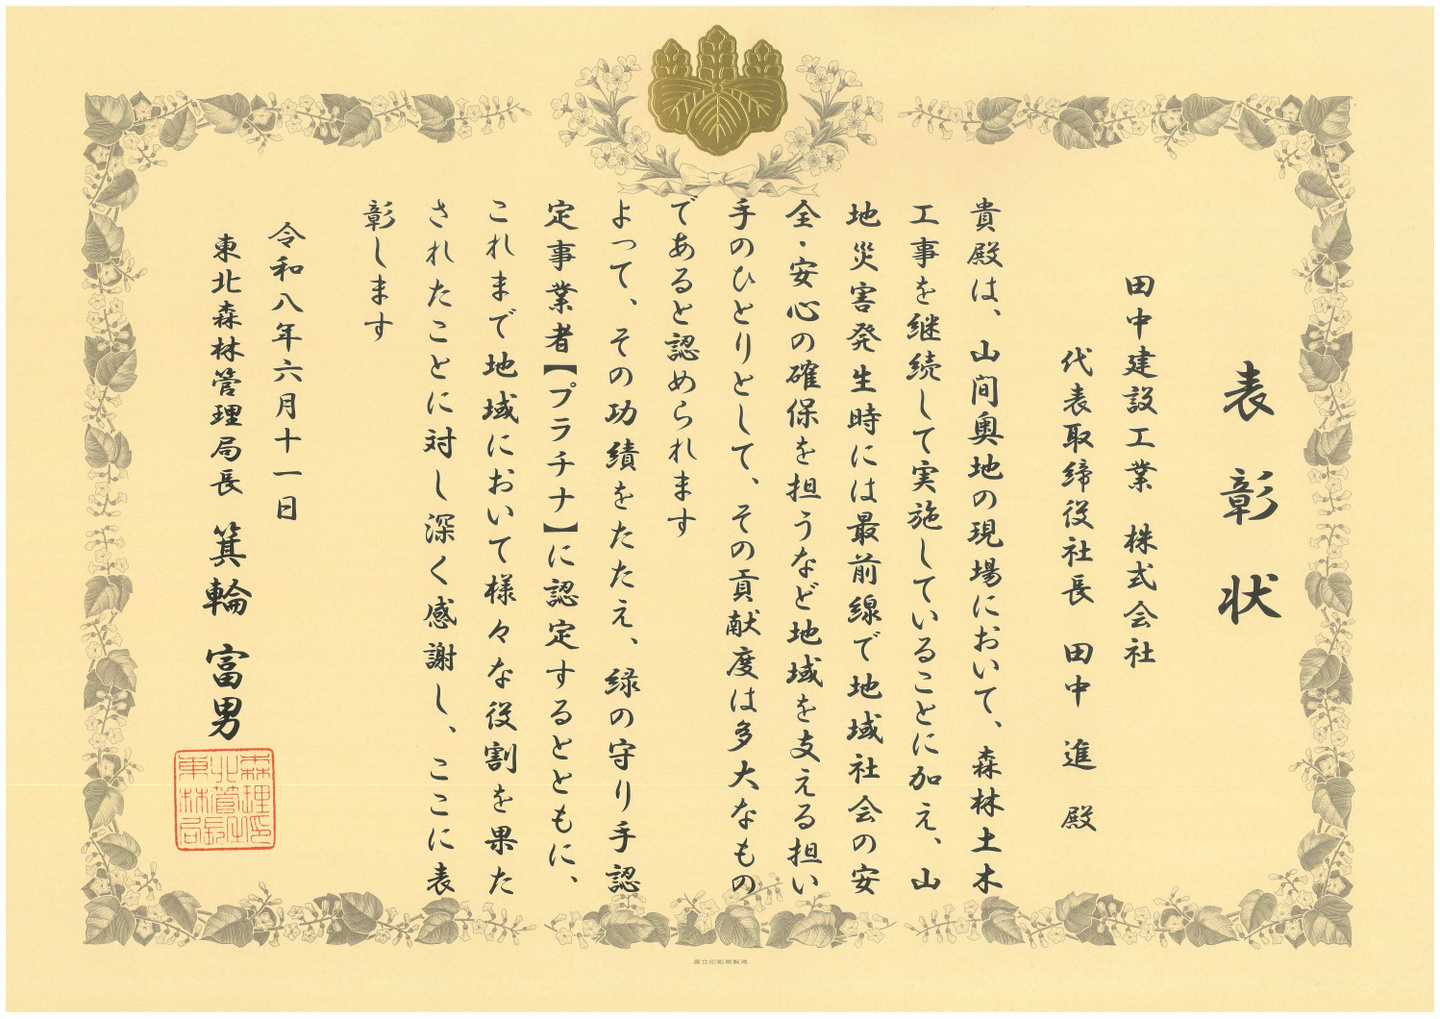 表彰状
田中建設工業 株式会社
代表取締役社長 田中 進 殿
貴殿は、山間奥地の現場において、森林土木
工事を継続して実施していることに加え、山
地災害発生時には最前線で地域社会の安
全・安心の確保を担うなど地域を支える担い
手のひとりとして、その貢献度は多大なもの
であると認められます
よって、その功績をたたえ、緑の守り手認
定事業者【プラチナ】に認定するとともに、
これまで地域において様々な役割を果た
されたことに対し深く感謝し、ここに表
彰します
令和八年六月十一日
東北森林管理局長 箕輪 富男
森林管理局長之印
国立印刷局製造